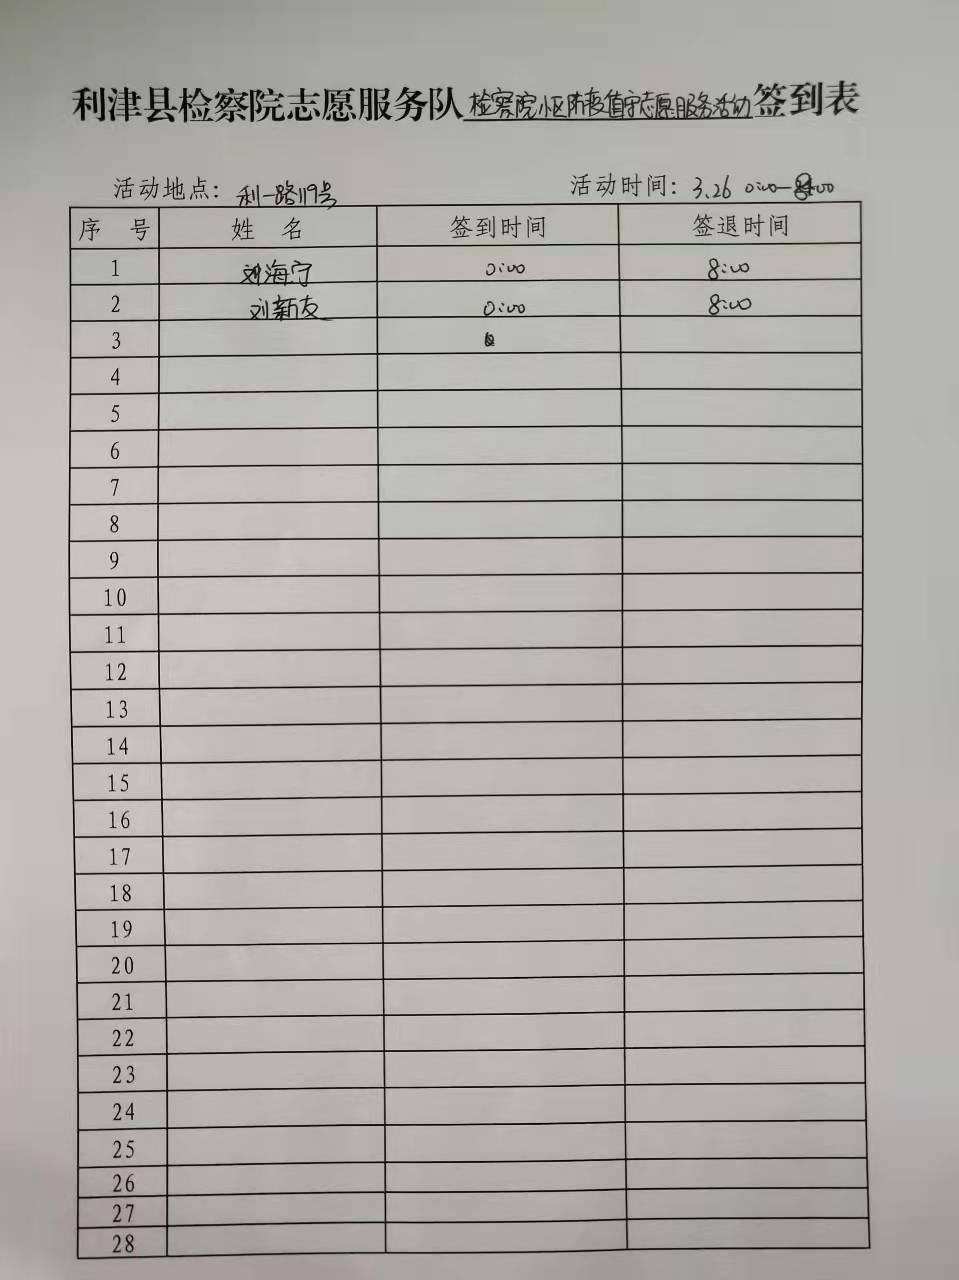 利津县检察院志愿服务队检察院小区防疫值守志愿服务活动签到表
活动地点：利一路119号 活动时间：3.26 0:00-8:00
序 号 姓 名 签到时间 签退时间
1 刘海宁 0:00 8:00
2 刘新友 0:00 8:00
3
4
5
6
7
8
9
10
11
12
13
14
15
16
17
18
19
20
21
22
23
24
25
26
27
28